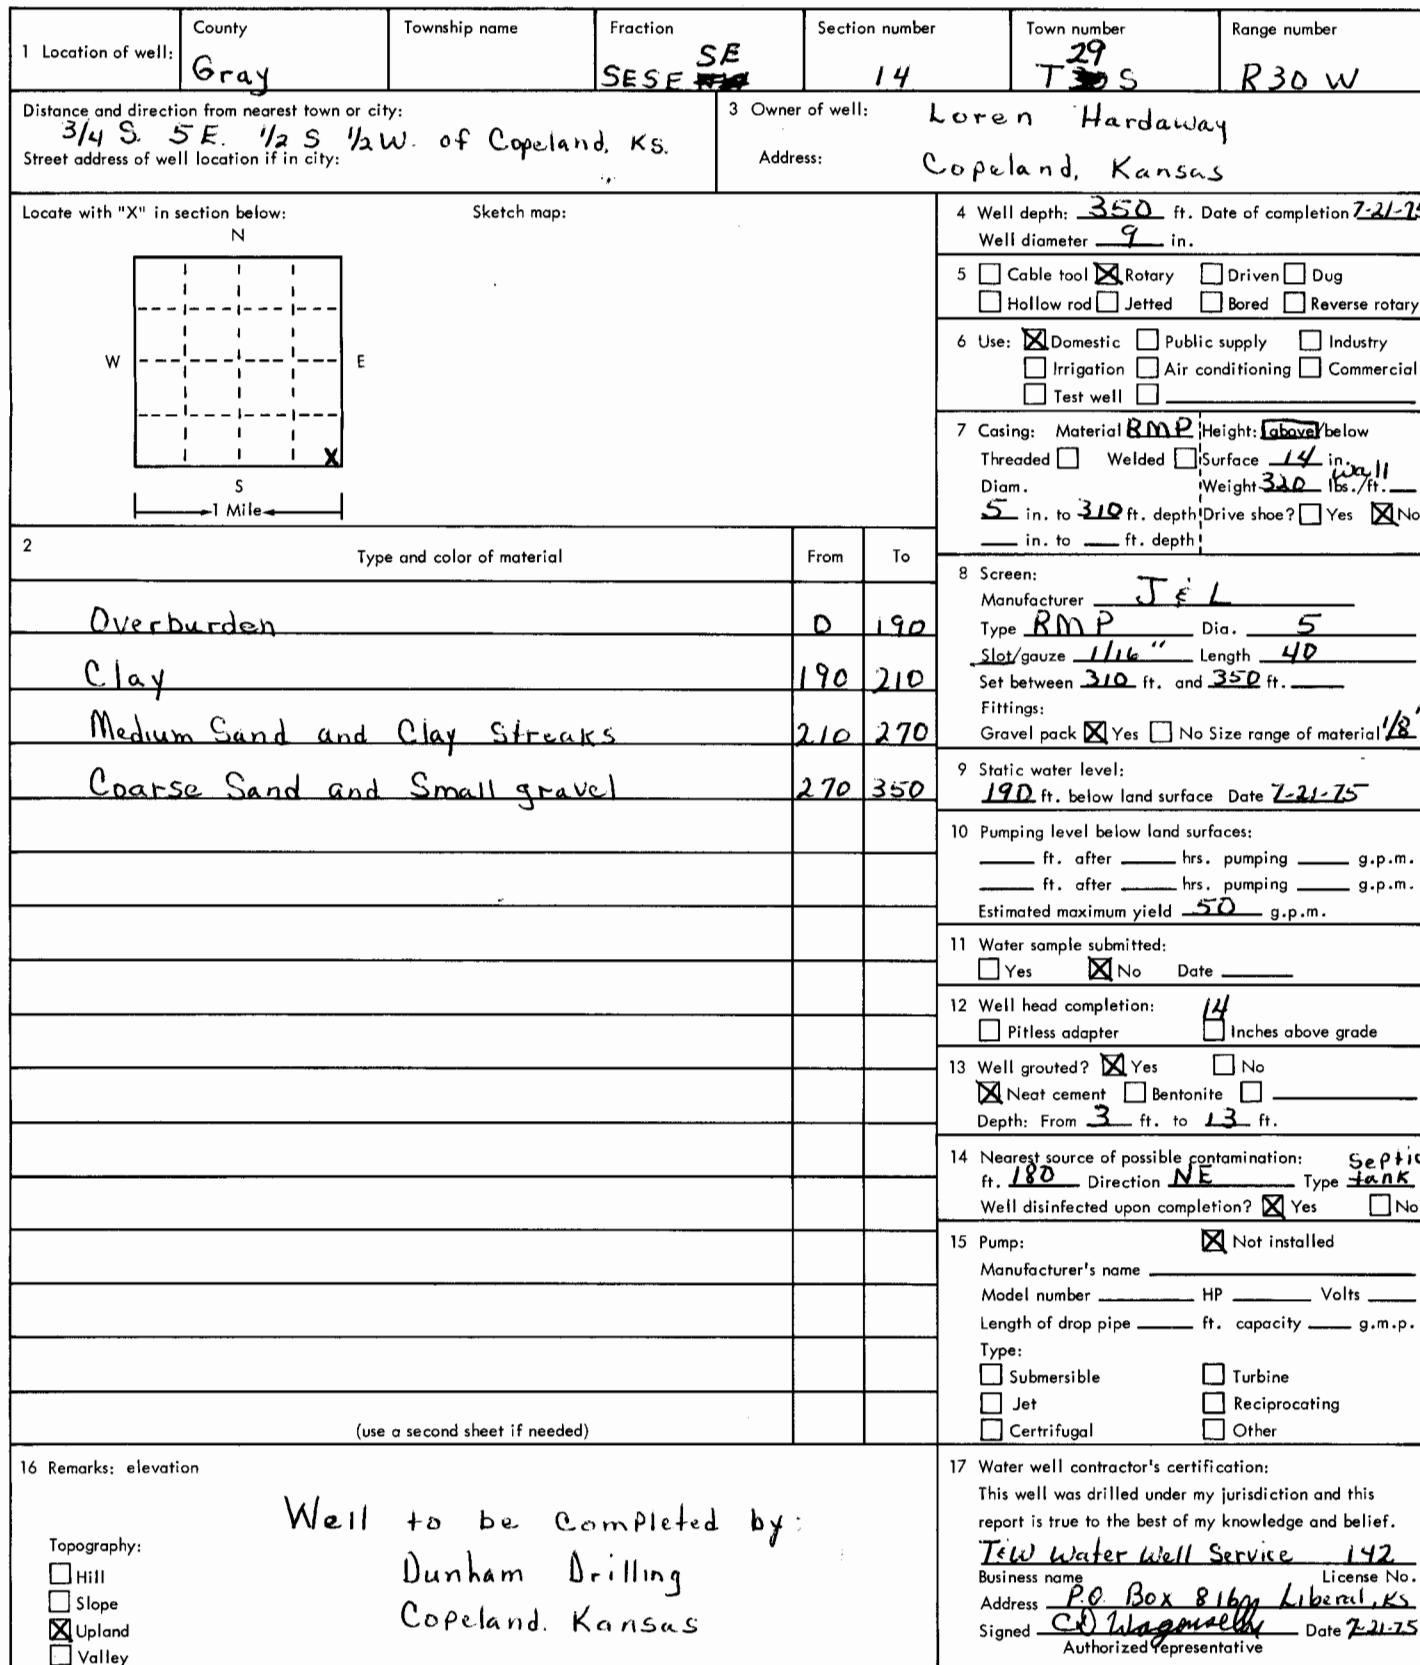 1 Location of well:
County
Gray
Township name
Fraction
SE
SESE
Section number
14
Town number
29
T S
Range number
R30 W
Distance and direction from nearest town or city:
3/4 S. 5 E. 1/2 S 1/2 W. of Copeland, Ks.
Street address of well location if in city:
3 Owner of well: Loren Hardaway
Address: Copeland, Kansas
Locate with "X" in section below: Sketch map:
N
W E
X
S
1 Mile
2 Type and color of material From To
Overburden 0 190
Clay 190 210
Medium Sand and Clay Streaks 210 270
Coarse Sand and Small gravel 270 350
(use a second sheet if needed)
4 Well depth: 350 ft. Date of completion 7-21-75
Well diameter 9 in.
5 Cable tool Rotary Driven Dug
Hollow rod Jetted Bored Reverse rotary
6 Use: Domestic Public supply Industry
Irrigation Air conditioning Commercial
Test well
7 Casing: Material RMP Height: above/below
Threaded Welded Surface 14 in.
wall
Diam. Weight 320 lbs./ft.
5 in. to 310 ft. depth Drive shoe? Yes No
in. to ft. depth
8 Screen:
Manufacturer J & L
Type RMP Dia. 5
Slot/gauze 1/16" Length 40
Set between 310 ft. and 350 ft.
Fittings:
Gravel pack Yes No Size range of material 1/8"
9 Static water level:
190 ft. below land surface Date 7-21-75
10 Pumping level below land surfaces:
ft. after hrs. pumping g.p.m.
ft. after hrs. pumping g.p.m.
Estimated maximum yield 50 g.p.m.
11 Water sample submitted:
Yes No Date
12 Well head completion: 14
Pitless adapter Inches above grade
13 Well grouted? Yes No
Neat cement Bentonite
Depth: From 3 ft. to 13 ft.
14 Nearest source of possible contamination: Septic
ft. 180 Direction NE Type tank
Well disinfected upon completion? Yes No
15 Pump: Not installed
Manufacturer's name
Model number HP Volts
Length of drop pipe ft. capacity g.m.p.
Type:
Submersible Turbine
Jet Reciprocating
Certrifugal Other
16 Remarks: elevation
Well to be Completed by:
Dunham Drilling
Copeland. Kansas
Topography:
Hill
Slope
Upland
Valley
17 Water well contractor's certification:
This well was drilled under my jurisdiction and this
report is true to the best of my knowledge and belief.
T&W Water Well Service 142
Business name License No.
Address P.O. Box Liberal, KS
Signed Date 7-21-75
Authorized representative